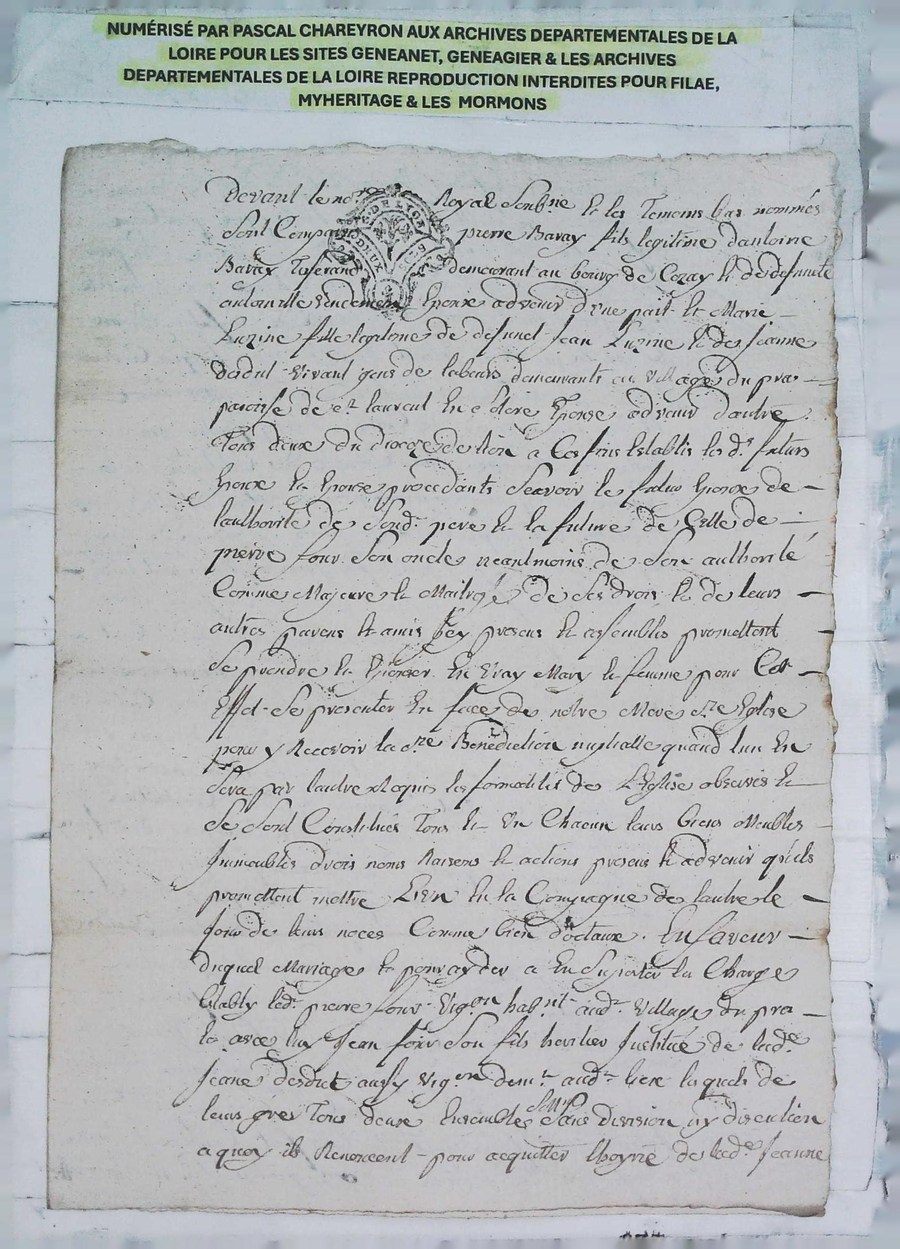 NUMÉRISÉ PAR PASCAL CHAREYRON AUX ARCHIVES DEPARTEMENTALES DE LA
LOIRE POUR LES SITES GENEANET, GENEAGIER & LES ARCHIVES
DEPARTEMENTALES DE LA LOIRE REPRODUCTION INTERDITES POUR FILAE,
MYHERITAGE & LES MORMONS
Devant le no Royal Soubne et les Temoins bas nommés
Sont Compar pierre Baray fils legitime dantoine
Baray demeurant au bourg de Cezay et de deffunte
Epoux advenir d'une part et Marie
Luzine fille legitime de defunct Jean Luzine et de Jeanne
vivant gens de labeurs demeurants au village du pra
paroisse de st laurent Epouse advenir dautre
Tous deux du dioceze de lion a Ces fins Establis les ds futurs
Epoux et Epouse procedants Scavoir le futur Epoux de
lauthorité de Sond pere et la future de Celle de
pierre four Son oncle neantmoins de Son authorité
Comme Majeure et Maitresse de Ses drois et de leurs
autres parens et amis Icy presens et assemblés promettent
Se prendre et Epouser En vray Mary et femme pour Cet
Effet Se presenter En face de notre Mere ste Eglise
pour y Recevoir la Benediction nuptialle quand lun En
Sera par lautre Requis les formalités de L'Eglise observés et
Se Sont Constitués Tous et Un Chacun leurs biens Meubles
Immeubles drois noms Raisons et actions presens et advenir quils
promettent mettre En la Compagnie de lautre le
jour de leurs noces Comme bien d'octaux. En faveur
duquel Mariage et pour ayder a En Suporter la Charge
Etably led pierre four vigon habnt aud village du pra
et avec luy Jean four Son fils heritier Institué de lad
Jeane aussy vigon demt aud lieu lequels de
leurs grés Tous deux Ensembles Sans division ny discution
a quoy ils Renoncent pour acquitter lhoyrie de lad Jeanne